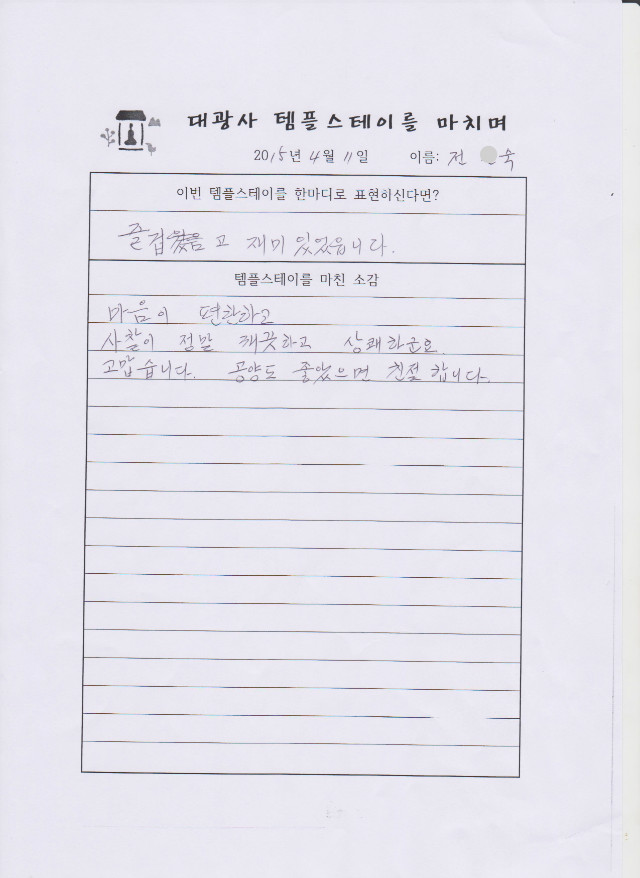 대광사 템플스테이를 마치며
2015년 4월 11일 이름: 전 욱
이번 템플스테이를 한마디로 표현하신다면?
즐겁 고 재미 있었읍니다.
템플스테이를 마친 소감
마음이 편안하고
사찰이 정말 깨끗하고 상쾌하군요.
고맙습니다. 공양도 좋았으며 친절 합니다.